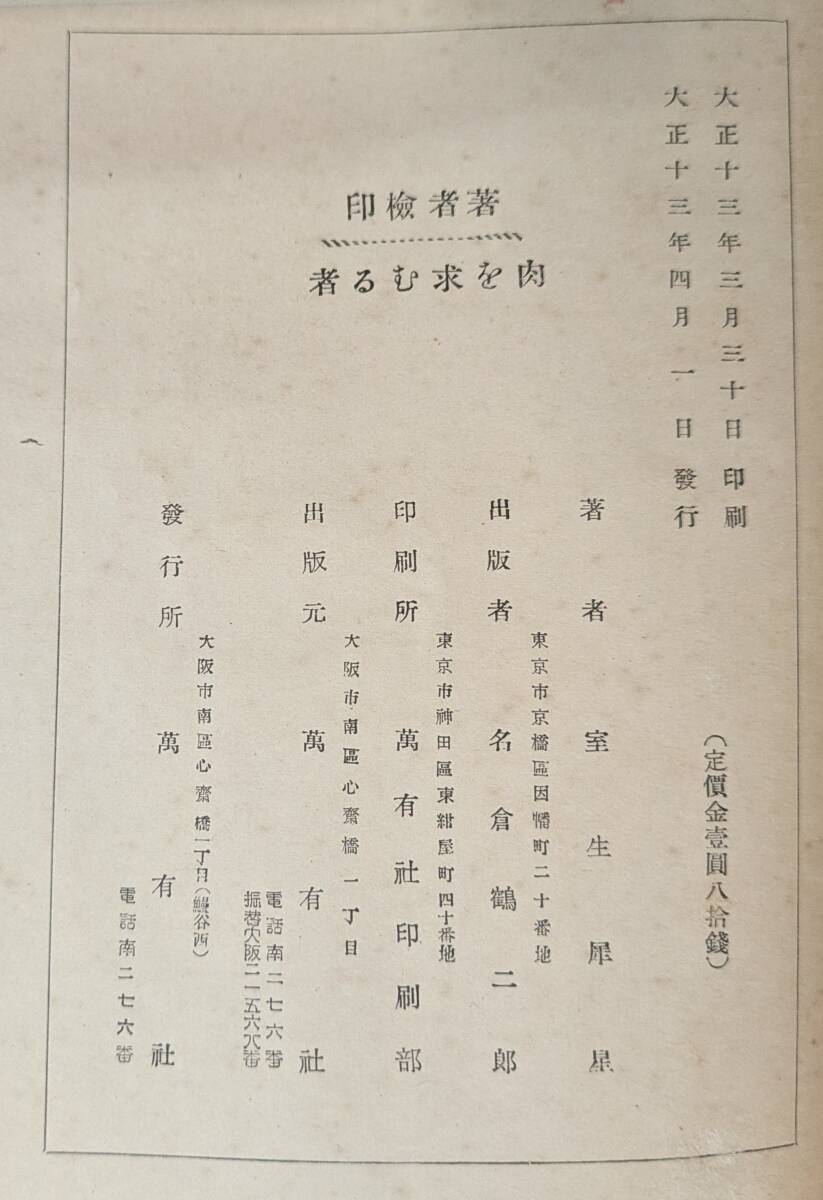 大正十三年三月三十日印刷
大正十三年四月一日發行
(定價金壹圓八拾錢)
著者檢印
肉を求むる者
著者 室生犀星
東京市京橋區因幡町二十番地
出版者 名倉鶴二郎
東京市神田區東紺屋町四十番地
印刷所 萬有社印刷部
大阪市南區心齋橋一丁目
出版元 萬有社
電話南二七六番
振替大阪二一五六六番
大阪市南區心齋橋一丁目(鰻谷西)
發行所 萬有社
電話南二七六番